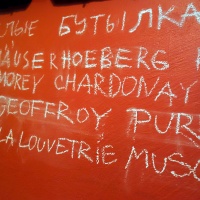 ЛЫЕ БУТЫЛКА
ÄUSER HOEBERG
MOREY CHARDONAY
GEOFFROY PUR
LA LOUVETRIE MUSC